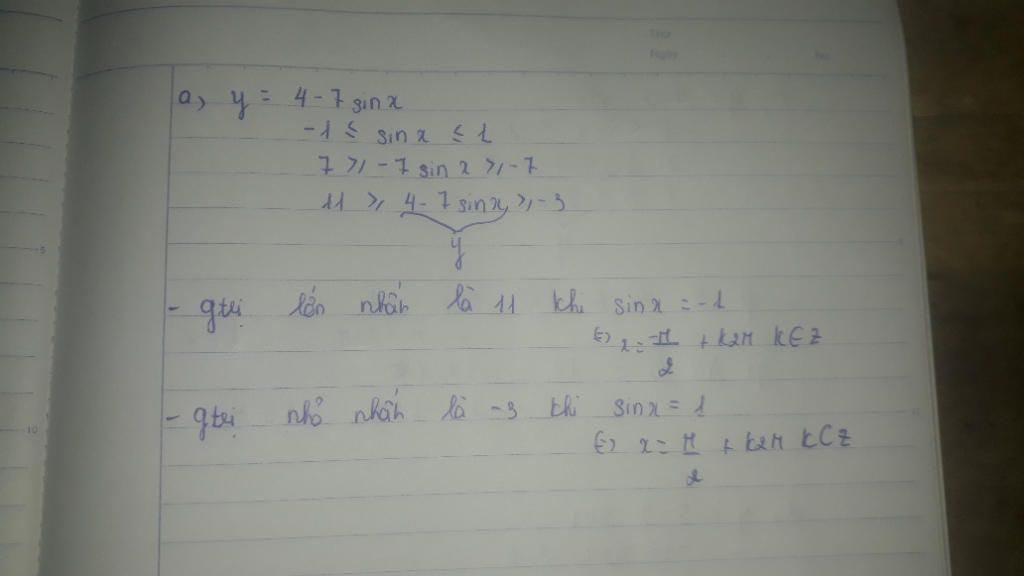 Thứ
Ngày No.
a, y = 4 - 7 sin x
-1 ≤ sin x ≤ 1
7 ≥ -7 sin x ≥ -7
11 ≥ 4 - 7 sin x ≥ -3
y
5
- gtrị lớn nhất là 11 khi sin x = -1
⇔ x = -π/2 + k2π k ∈ Z
- gtrị nhỏ nhất là -3 khi sin x = 1
10
⇔ x = π/2 + k2π k ∈ Z